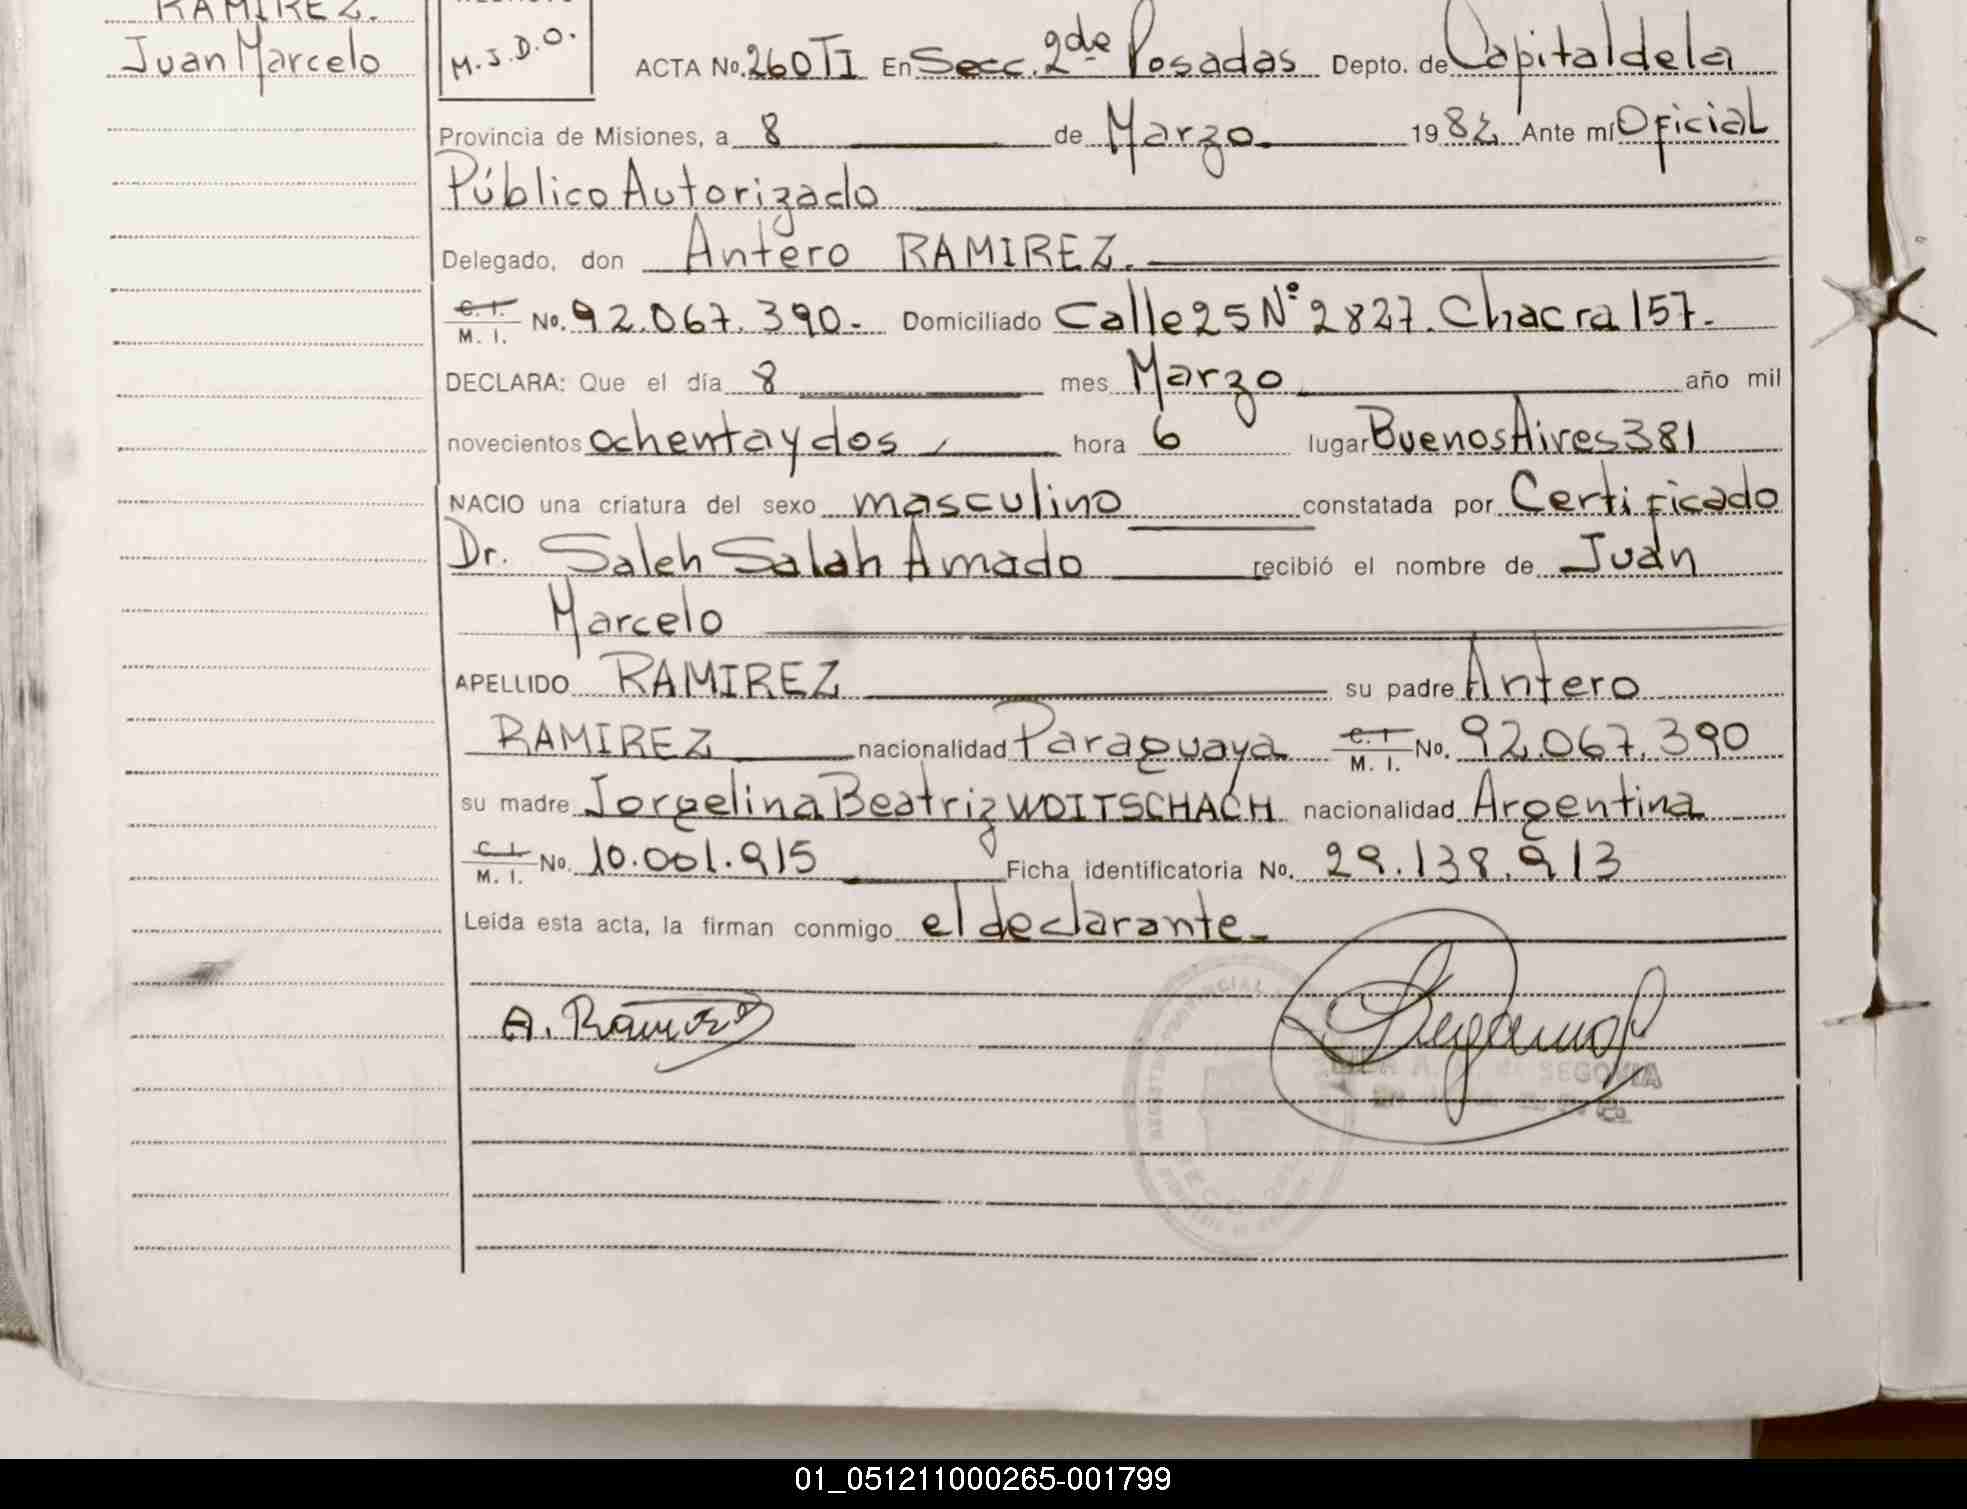 RAMIREZ.
Juan Marcelo
M.J.D.O.
ACTA No. 260 TI En Secc. 2da de Posadas Depto. de Capital de la
Provincia de Misiones, a 8 de Marzo 1982 Ante mí Oficial
Público Autorizado
Delegado, don Antero RAMIREZ.
C. I. / M. I. No. 92.067.390.- Domiciliado Calle 25 N° 2827. Chacra 157.
DECLARA: Que el día 8 mes Marzo año mil
novecientos ochenta y dos hora 6 lugar Buenos Aires 381
NACIO una criatura del sexo masculino constatada por Certificado
Dr. Saleh Salah Amado recibió el nombre de Juan
Marcelo
APELLIDO RAMIREZ su padre Antero
RAMIREZ nacionalidad Paraguaya C. I. / M. I. No. 92.067.390
su madre Jorgelina Beatriz WOITSCHACH nacionalidad Argentina
C. I. / M. I. No. 10.001.915 Ficha identificatoria No. 29.138.913
Leída esta acta, la firman conmigo el declarante.
A. Ramirez
SEGOVIA
01_051211000265-001799